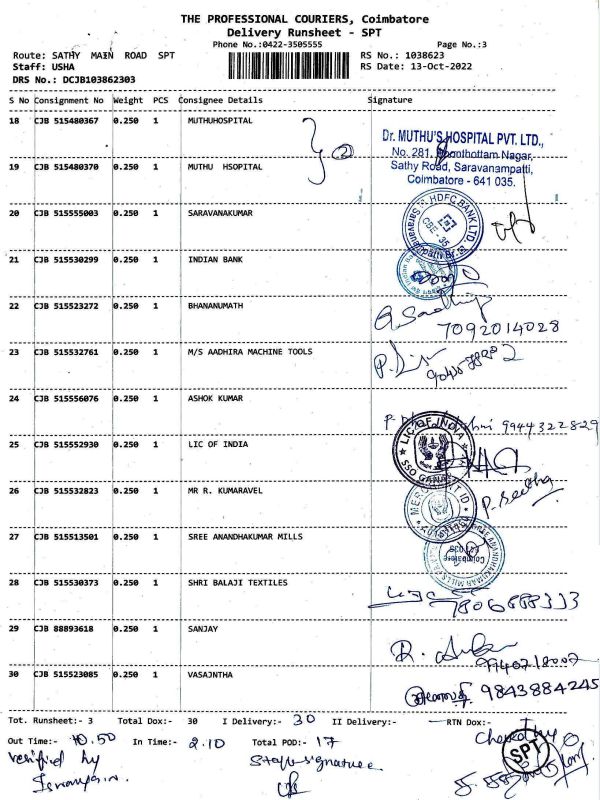 THE PROFESSIONAL COURIERS, Coimbatore
Delivery Runsheet - SPT
Phone No.:0422-3505555 Page No.:3
Route: SATHY MAIN ROAD SPT RS No.: 1038623
Staff: USHA RS Date: 13-Oct-2022
DRS No.: DCJB103862303
S No Consignment No Weight PCS Consignee Details Signature
18 CJB 515480367 0.250 1 MUTHUHOSPITAL
2
Dr. MUTHU'S HOSPITAL PVT. LTD.,
No. 281, Nagar,
Sathy Road, Saravanampatti,
Coimbatore - 641 035.
19 CJB 515480370 0.250 1 MUTHU HSOPITAL
20 CJB 515555003 0.250 1 SARAVANAKUMAR
HDFC BANK LTD.
CBE - 35
21 CJB 515530299 0.250 1 INDIAN BANK
22 CJB 515523272 0.250 1 BHANANUMATH
7092014028
23 CJB 515532761 0.250 1 M/S AADHIRA MACHINE TOOLS
24 CJB 515556076 0.250 1 ASHOK KUMAR
9944322829
25 CJB 515552930 0.250 1 LIC OF INDIA
LIC OF INDIA
26 CJB 515532823 0.250 1 MR R. KUMARAVEL
P. Seetha
27 CJB 515513501 0.250 1 SREE ANANDHAKUMAR MILLS
28 CJB 515530373 0.250 1 SHRI BALAJI TEXTILES
7806888333
29 CJB 88893618 0.250 1 SANJAY
30 CJB 515523085 0.250 1 VASAJNTHA
9843884245
Tot. Runsheet:- 3 Total Dox:- 30 I Delivery:- 30 II Delivery:- RTN Dox:-
Out Time:- 10.50 In Time:- 2.10 Total POD:- 17
Verified by Staff signature
SPT